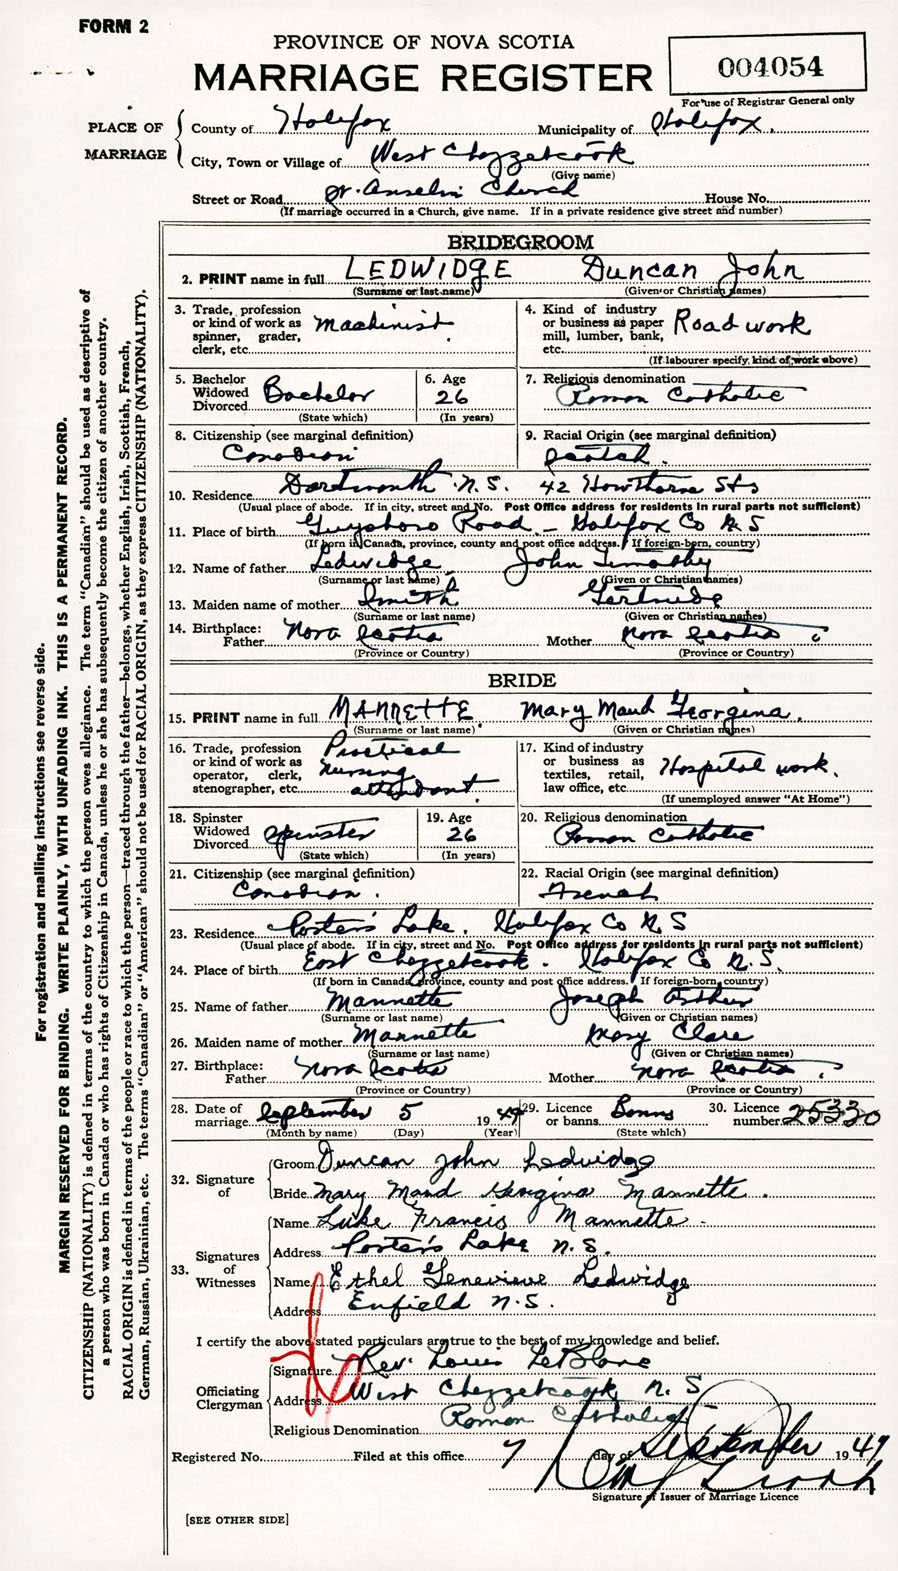 FORM 2
PROVINCE OF NOVA SCOTIA
MARRIAGE REGISTER
004054
For use of Registrar General only
PLACE OF MARRIAGE
County of Halifax Municipality of Halifax.
City, Town or Village of West Chezzetcook
(Give name)
Street or Road St. Anselm Church House No.
(If marriage occurred in a Church, give name. If in a private residence give street and number)
BRIDEGROOM
2. PRINT name in full LEDWIDGE Duncan John
(Surname or last name) (Given or Christian names)
3. Trade, profession or kind of work as spinner, grader, clerk, etc. Machinist
4. Kind of industry or business as paper mill, lumber, bank, etc. Road work
(If labourer specify kind of work above)
5. Bachelor Widowed Divorced Bachelor
(State which)
6. Age 26
(In years)
7. Religious denomination Roman Catholic
8. Citizenship (see marginal definition) Canadian
9. Racial Origin (see marginal definition) Scotch.
10. Residence Dartmouth N.S. 42 Hawthorne St
(Usual place of abode. If in city, street and No. Post Office address for residents in rural parts not sufficient)
11. Place of birth Guysboro Road - Halifax Co N.S
(If born in Canada, province, county and post office address. If foreign-born, country)
12. Name of father Ledwidge John Timothy
(Surname or last name) (Given or Christian names)
13. Maiden name of mother Smith Gertrude
(Surname or last name) (Given or Christian names)
14. Birthplace: Father Nova Scotia Mother Nova Scotia
(Province or Country) (Province or Country)
BRIDE
15. PRINT name in full MANNETTE Mary Maud Georgina.
(Surname or last name) (Given or Christian names)
16. Trade, profession or kind of work as operator, clerk, stenographer, etc. Practical nursing attendant.
17. Kind of industry or business as textiles, retail, law office, etc. Hospital work.
(If unemployed answer "At Home")
18. Spinster Widowed Divorced Spinster
(State which)
19. Age 26
(In years)
20. Religious denomination Roman Catholic
21. Citizenship (see marginal definition) Canadian.
22. Racial Origin (see marginal definition) French
23. Residence Porter's Lake. Halifax Co N.S
(Usual place of abode. If in city, street and No. Post Office address for residents in rural parts not sufficient)
24. Place of birth East Chezzetcook. Halifax Co N.S.
(If born in Canada, province, county and post office address. If foreign-born, country)
25. Name of father Mannette Joseph Arthur
(Surname or last name) (Given or Christian names)
26. Maiden name of mother Mannette Mary Clare
(Surname or last name) (Given or Christian names)
27. Birthplace: Father Nova Scotia Mother Nova Scotia
(Province or Country) (Province or Country)
28. Date of marriage September 5 1949
(Month by name) (Day) (Year)
29. Licence or banns Banns
(State which)
30. Licence number 25330
32. Signature of
Groom Duncan John Ledwidge
Bride Mary Maud Georgina Mannette.
33. Signatures of Witnesses
Name Luke Francis Mannette
Address Porter's Lake N.S.
Name Ethel Genevieve Ledwidge
Address Enfield N.S.
I certify the above stated particulars are true to the best of my knowledge and belief.
Officiating Clergyman
Signature Rev. Louis LeBlanc
Address West Chezzetcook N.S
Religious Denomination Roman Catholic
Registered No. Filed at this office 7 day of September 1949
Signature of Issuer of Marriage Licence
[SEE OTHER SIDE]
For registration and mailing instructions see reverse side.
MARGIN RESERVED FOR BINDING. WRITE PLAINLY, WITH UNFADING INK. THIS IS A PERMANENT RECORD.
CITIZENSHIP (NATIONALITY) is defined in terms of the country to which the person owes allegiance. The term "Canadian" should be used as descriptive of
a person who was born in Canada or who has rights of Citizenship in Canada, unless he or she has subsequently become the citizen of another country.
RACIAL ORIGIN is defined in terms of the people or race to which the person—traced through the father—belongs, whether English, Irish, Scottish, French,
German, Russian, Ukrainian, etc. The terms "Canadian" or "American" should not be used for RACIAL ORIGIN, as they express CITIZENSHIP (NATIONALITY).